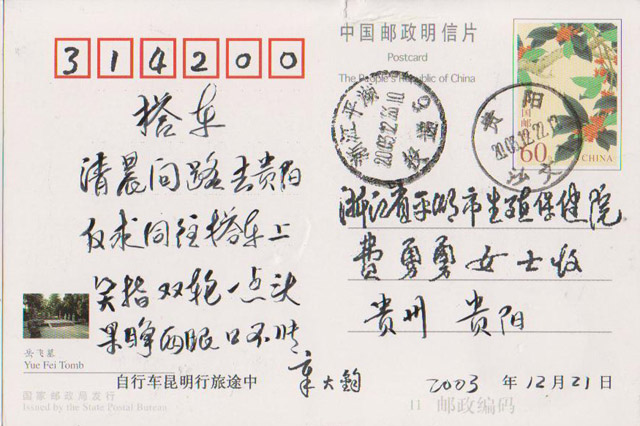 314200
中国邮政明信片
Postcard
The People's Republic of China
搭车
清晨问路去贵阳
仅求同往搭车上
笑指双轮一点头
果睁两眼口不
自行车昆明行旅途中
章大钧
岳飞墓
Yue Fei Tomb
国家邮政局发行
Issued by the State Postal Bureau
中国邮
60分
CHINA
浙江平湖
2003.12.
贵阳
2003.12.22.
浙江省平湖市生殖保健院
费勇勇女士收
贵州 贵阳
2003 年 12月21日
邮政编码